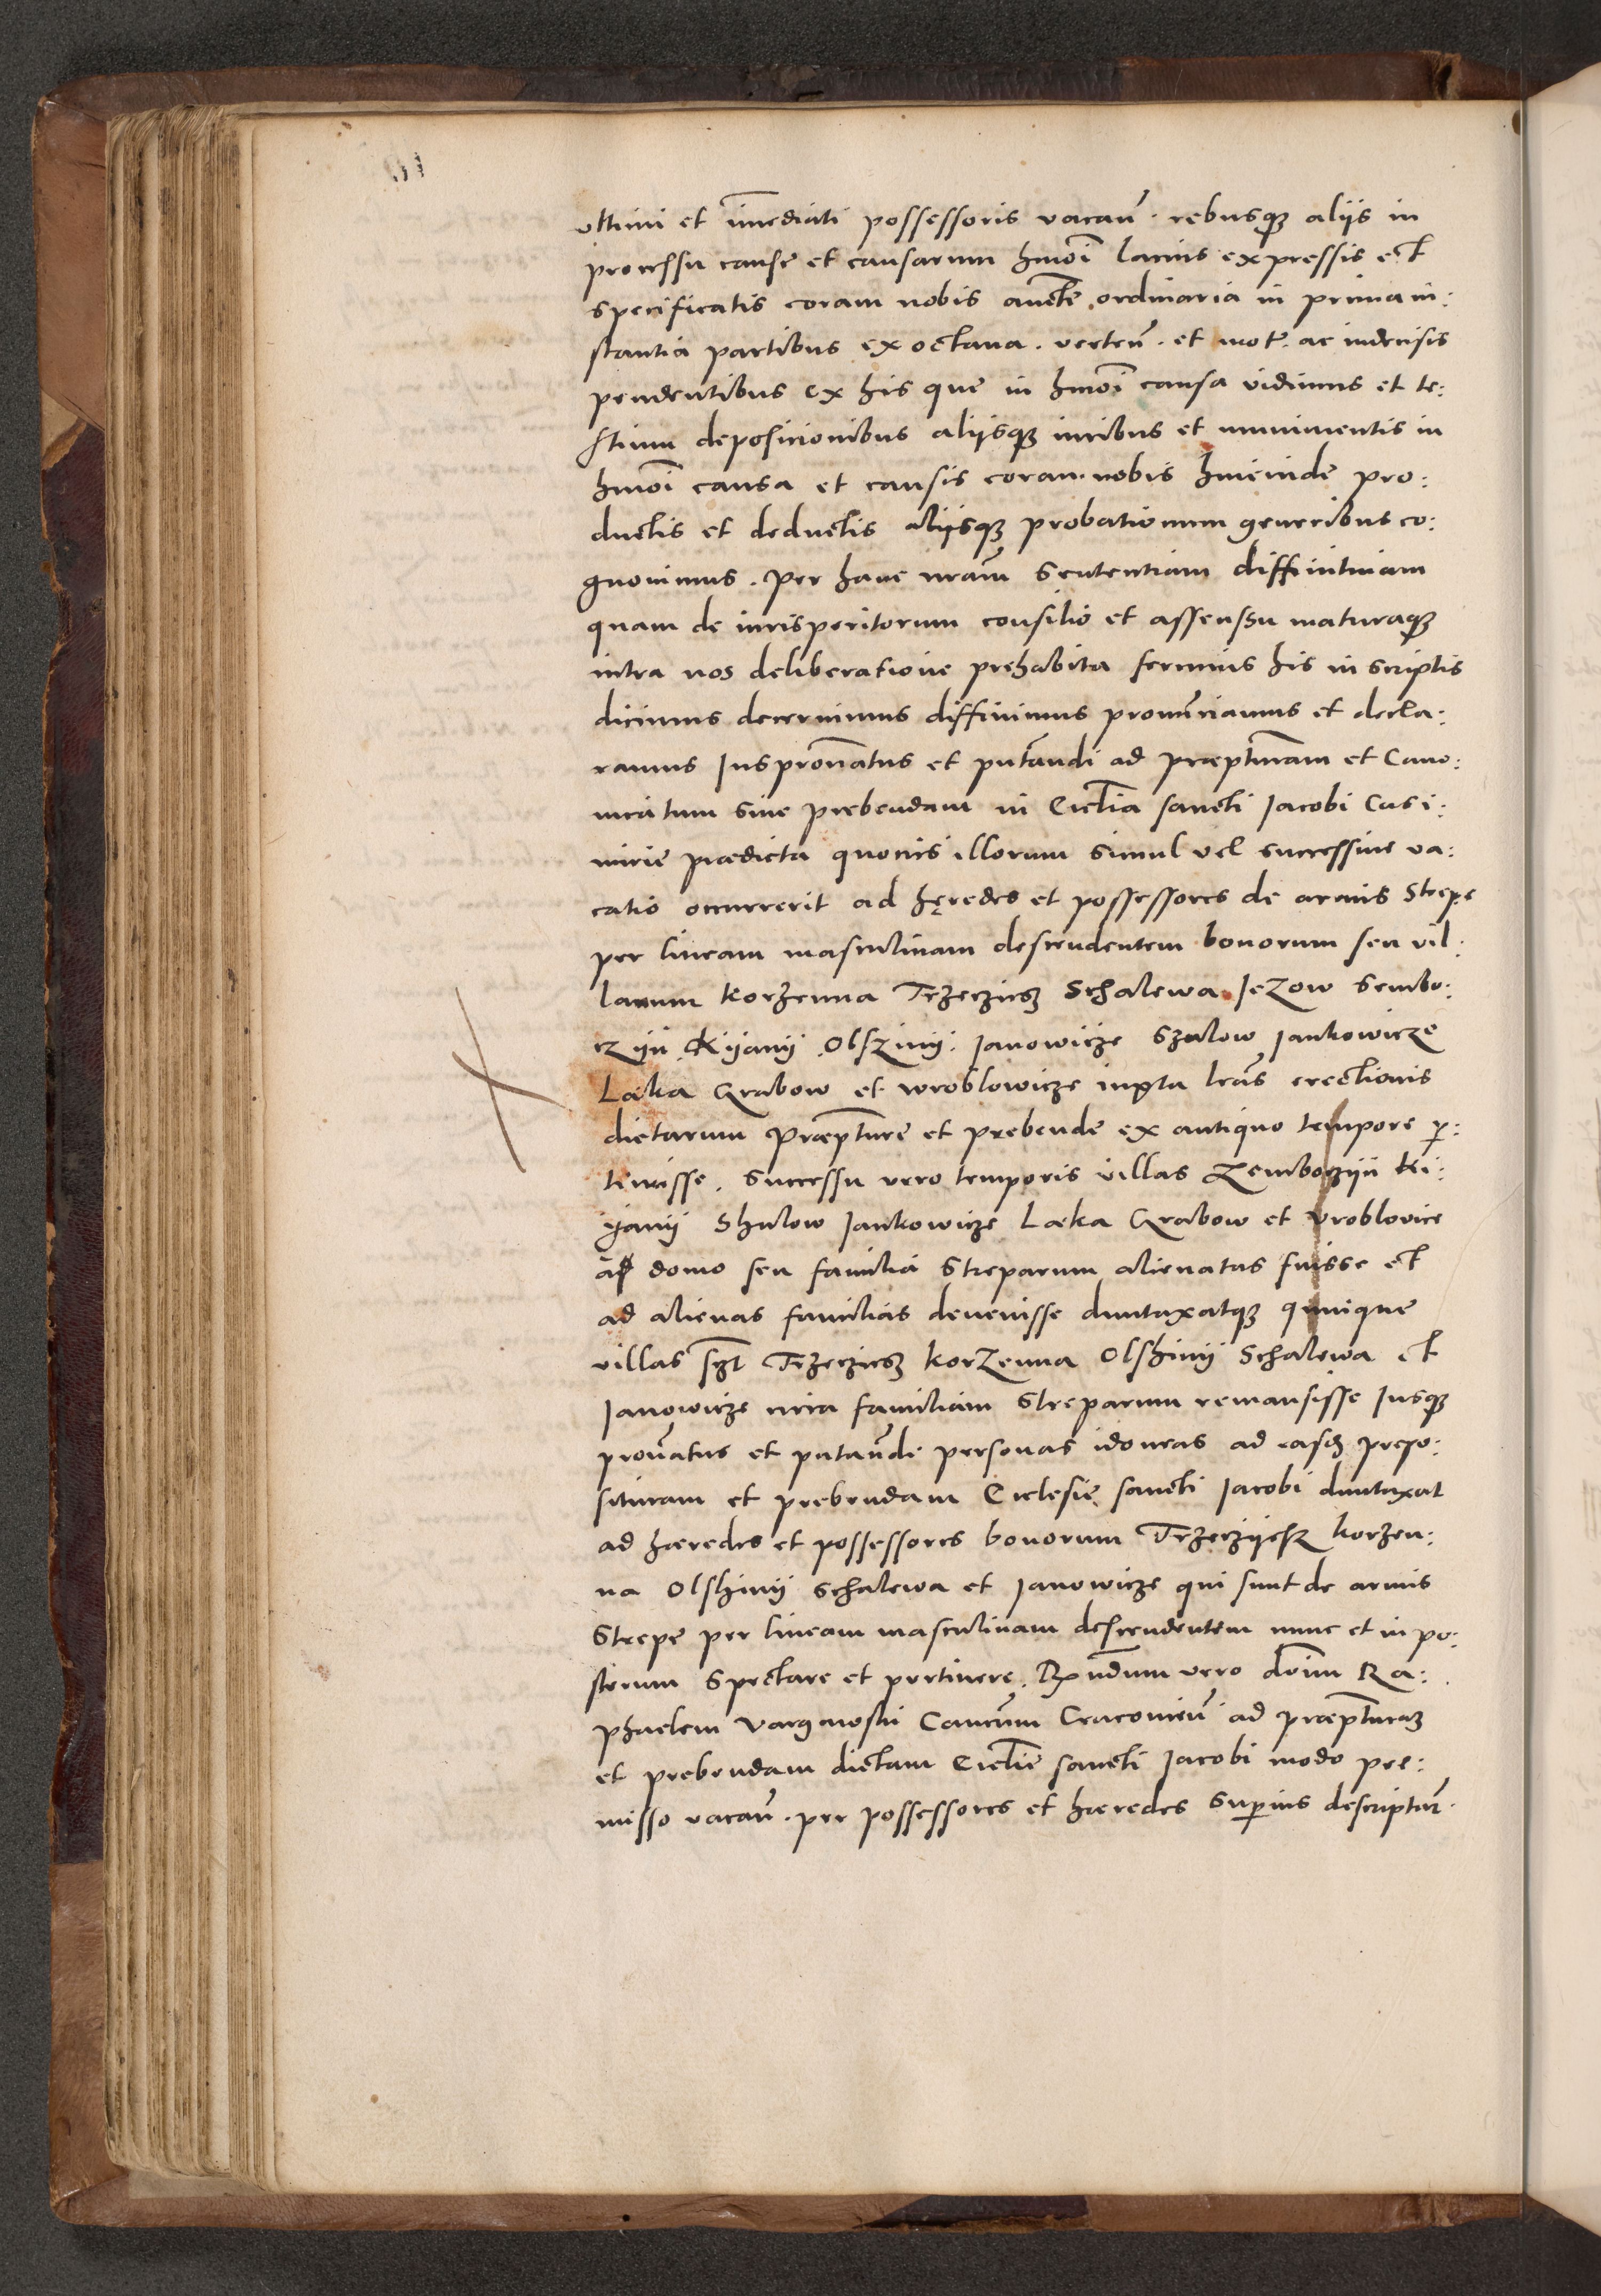 ultimi et īmediati possessoris vacan̄. rebusq₃ aliis in
processu cause et causarum hmōi latius expressis et
specificatis coram nobis aucte ordinaria in prima in:
stantia partibus ex octaua. verten̄. et mot. ac indecisis
pendentibus ex his que in hmōi causa vidimus et te:
stium deposicionibus aliisq₃ iuribus et munimentis in
hmōi causa et causis coram nobis hincinde pro:
ductis et deductis aliisq₃ probationum generibus co:
gnouimus. per hanc nrām sententiam diffinitiuam
quam de iurisperitorum consilio et assenssu maturaq₃
intra nos deliberatione prehabita ferimus his in scriptis
dicimus decernimus diffinimus pronūciamus et decla:
ramus Juspronātus et pntandi ad præptur̄am et Cano:
nicatum siue prebendam in Ecctia sancti Jacobi Casi:
mirie prædicta quotiescumque illorum simul vel successiue va:
catio occurrerit ad hęredes et possessores de armis Strepe
per lineam masculinam descendentem bonorum seu vil:
larum Korzenna Trzecziesz Schalewa Jezow Sembo:
rzyn Kyanÿ Olszinÿ Janowicze Szalow Jankowicze
Laka Grabow et wroblowicze iuxta lrās erectionis
dictarum præpture et prebende ex antiquo tempore p:
tinuisse. Successu vero temporis villas Zemborzyn Ki:
ÿanÿ Shalow Jankowicze Laka Grabow et Vroblovice
a domo seu familia Streparum alienatas fuisse et
ad alienas familias deuenisse duntaxatq₃ quinque
villas sczt Trzecziesz Korzenna Olshinÿ Schalewa et
Janowicze circa familiam Streparum remansisse Jusq₃
pronatus et pntande personas idoneas ad easd prepo:
situram et prebendam Ecclesie sancti Jacobi duntaxat
ad hæredes et possessores bonorum Trzeczÿesz Korzen:
na Olshinÿ Schalewa et Janowicze qui sunt de armis
Strepe per lineam masculinam descendentem nunc et in po:
sterum spectare et pertinere. Rndum vero dnm Ra:
phaelem Vargawski Cancum Cracouien̄ ad præpturam
et prebendam dictam Ecctie sancti Jacobi modo pre:
misso vacan̄. per possessores et hæredes superius descriptur̄.